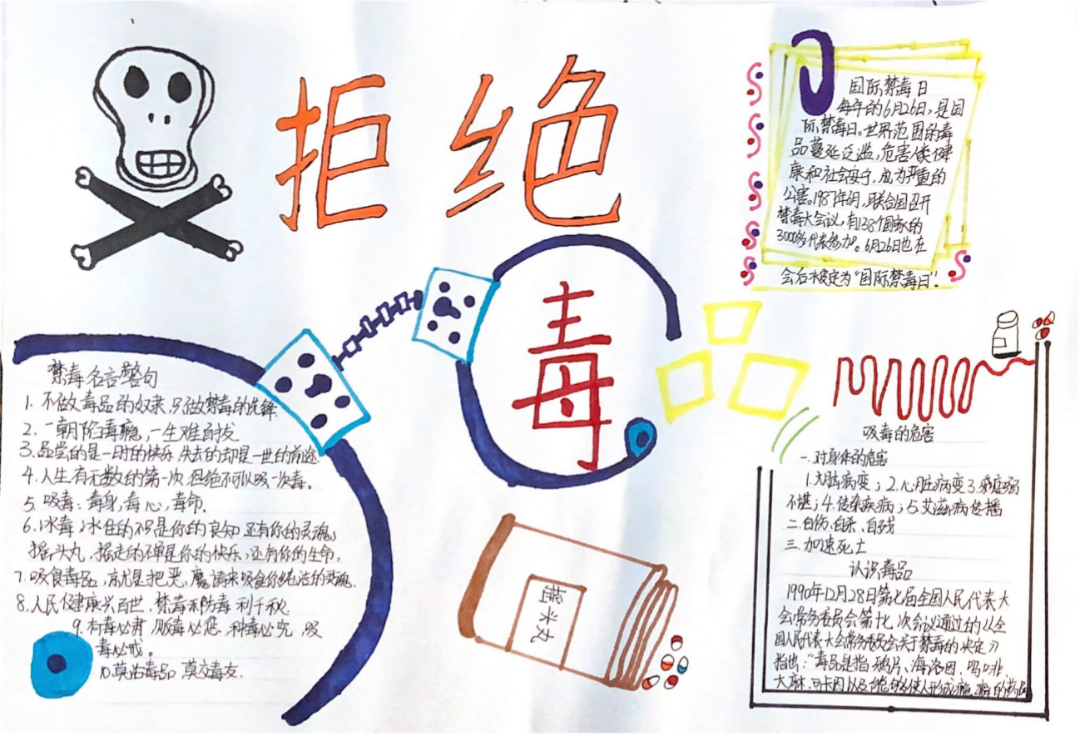 拒绝
毒
国际禁毒日
每年的6月26日，是国
际禁毒日。世界范围的毒
品蔓延泛滥，危害人类健
康和社会安宁，成为严重的
公害。1987年6月，联合国召开
禁毒大会议，有138个国家的
3000多代表参加。6月26日也在
会后被定为“国际禁毒日”.
禁毒名言警句
1. 不做毒品的奴隶，只做禁毒的先锋
2. 一朝陷毒瘾，一生难自拔
3. 品尝的是一时的快乐，失去的却是一世的前途.
4. 人生有无数的第一次，但绝不可以吸一次毒。
5. 吸毒：毒身，毒心，毒命.
6. 冰毒：冰住的不只是你的良知，还有你的灵魂；
摇头丸，摇走的不单是你的快乐，还有你的生命。
7. 吸食毒品，就是把恶魔请来吸食你纯洁的灵魂.
8. 人民健康兴百世，禁毒利千秋.
9. 有毒必肃，贩毒必惩，种毒必究，吸
毒必戒。
10. 莫沾毒品，莫交毒友.
丸
吸毒的危害
一. 对身体的危害
1. 大脑病变；2. 心脏病变3.
不堪；4. 传染疾病；5. 艾滋病传播
二. 自伤、自杀、自残
三. 加速死亡
认识毒品
1990年12月28日第七届全国人民代表大
会常务委员会第十七次会议通过的《全
国人民代表大会常务委员会关于禁毒的决定》
指出：“毒品是指鸦片、海洛因、吗啡、
大麻、可卡因以及能够使人形成瘾癖的药品